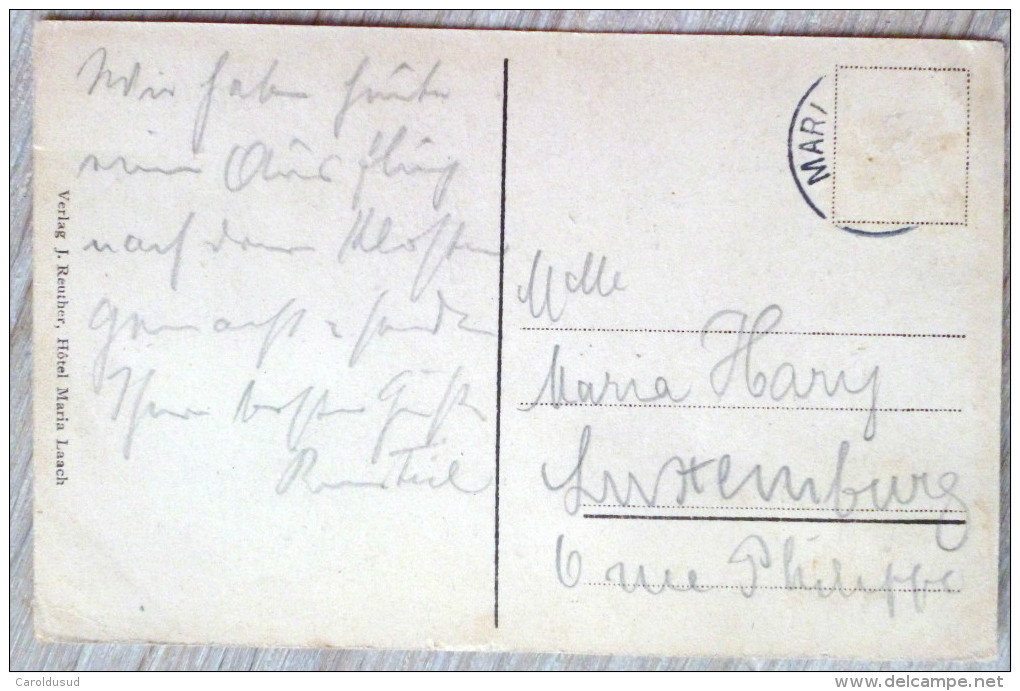 Wir haben heute
einen Ausflug
nach dem Kloster
gemacht u. senden
Ihnen besten Gruß
Verlag J. Reuther, Hôtel Maria Laach
MARI
Melle
Maria Hary
Luxemburg
6 rue Philippe
Caroldusud
delcampe.net